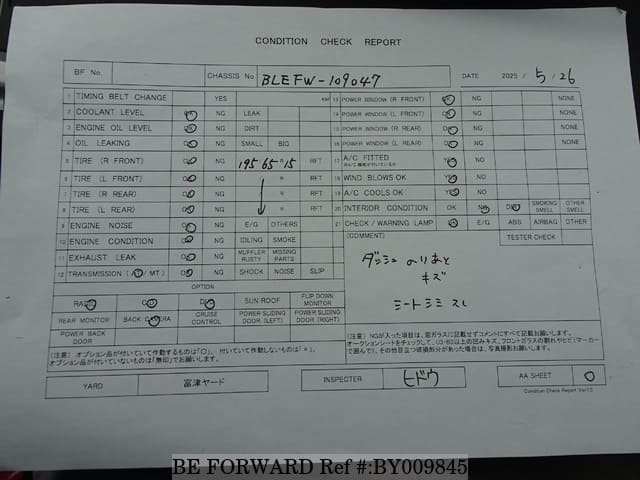 CONDITION CHECK REPORT
BF No. CHASSIS No. BLEFW-109047 DATE 2025 / 5 / 26
1 TIMING BELT CHANGE YES KM
2 COOLANT LEVEL OK NG LEAK
3 ENGINE OIL LEVEL OK NG DIRT
4 OIL LEAKING OK NG SMALL BIG
5 TIRE (R FRONT) OK NG 195 65 R 15 RFT
6 TIRE (L FRONT) OK NG R RFT
7 TIRE (R REAR) OK NG R RFT
8 TIRE (L REAR) OK NG R RFT
9 ENGINE NOISE OK NG E/G OTHERS
10 ENGINE CONDITION OK NG IDLING SMOKE
11 EXHAUST LEAK OK NG MUFFLER RUSTY MISSING PARTS
12 TRANSMISSION (AT/ MT) OK NG SHOCK NOISE SLIP
OPTION
RADIO CD DVD SUN ROOF FLIP DOWN MONITOR
REAR MONITOR BACK CAMERA CRUISE CONTROL POWER SLIDING DOOR (LEFT) POWER SLIDING DOOR (RIGHT)
POWER BACK DOOR
(注意) オプション品が付いていて作動するものは「○」, 付いていて作動しないものは「×」,
オプション品が付いていないものは「無印」でお願します。
13 POWER WINDOW (R FRONT) OK NG NONE
14 POWER WINDOW (L FRONT) OK NG NONE
15 POWER WINDOW (R REAR) OK NG NONE
16 POWER WINDOW (L REAR) OK NG NONE
17 A/C FITTED YES NO
18 WIND BLOWS OK YES NO
19 A/C COOLS OK YES NO
20 INTERIOR CONDITION OK NG DIRT SMOKING SMELL OTHER SMELL
21 CHECK / WARNING LAMP OK E/G ABS AIRBAG OTHER
(COMMENT) TESTER CHECK
ダッシュ のりあと
キズ
シートシミ スレ
(注意) NGが入った項目は、窓ガラスに記載せずコメントにすべて記載お願いします。
オークションシートをチェックして、U3・B3以上の凹みキズ、フロントガラスの割れやヒビ(マーカー
で囲んで)、その他目立つ破損部分があった場合は、写真撮影お願いします。
YARD 富津ヤード INSPECTER ヒドウ AA SHEET ○
Condition Check Report Ver7.0
BE FORWARD Ref #:BY009845